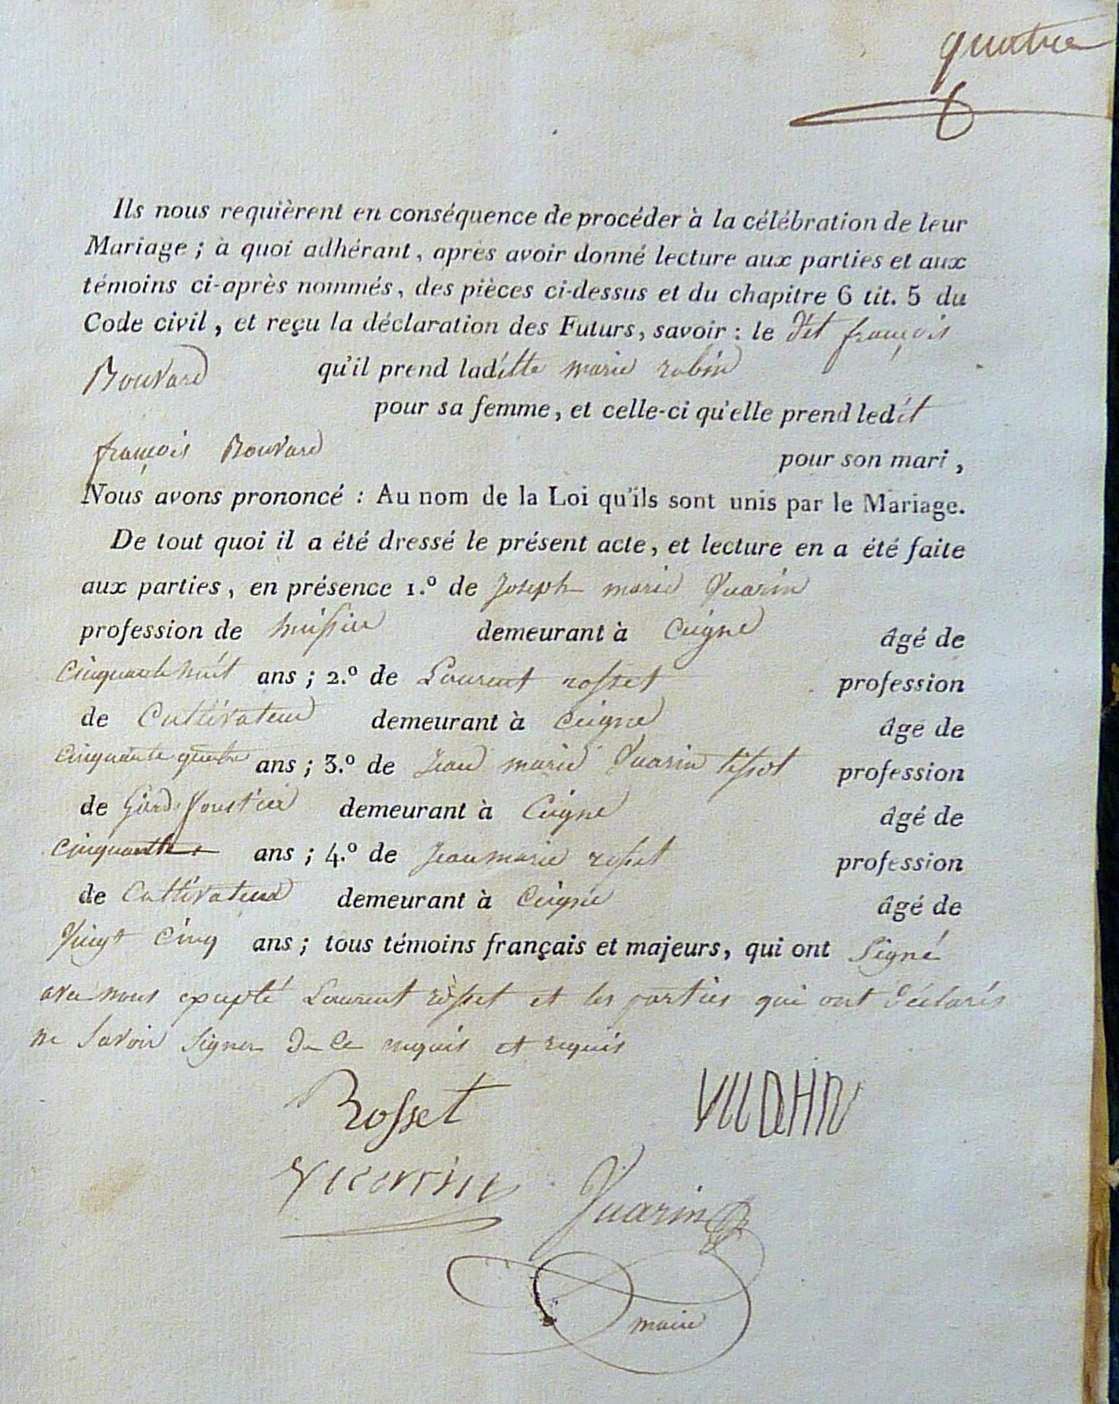 quatre
Ils nous requièrent en conséquence de procéder à la célébration de leur
Mariage ; à quoi adhérant, après avoir donné lecture aux parties et aux
témoins ci-après nommés, des pièces ci-dessus et du chapitre 6 tit. 5 du
Code civil, et reçu la déclaration des Futurs, savoir : le dit françois
Bouvard qu'il prend laditte marie robin
pour sa femme, et celle-ci qu'elle prend ledit
françois Bouvard pour son mari,
Nous avons prononcé : Au nom de la Loi qu'ils sont unis par le Mariage.
De tout quoi il a été dressé le présent acte, et lecture en a été faite
aux parties, en présence 1.º de Joseph marie Vuarin
profession de huissier demeurant à Ceigne âgé de
cinquante huit ans ; 2.º de Laurent rosset profession
de Cultivateur demeurant à ceigne âgé de
cinquante quatre ans ; 3.º de Jean marie Vuarin tissot profession
de demeurant à Ceigne âgé de
cinquante ans ; 4.º de Jean marie rosset profession
de Cultivateur demeurant à Ceigne âgé de
Vingt cinq ans ; tous témoins français et majeurs, qui ont signé
avec nous excepté Laurent rosset et les parties qui ont déclarés
ne savoir signer de ce enquis et requis
Rosset
Vuarin
maire